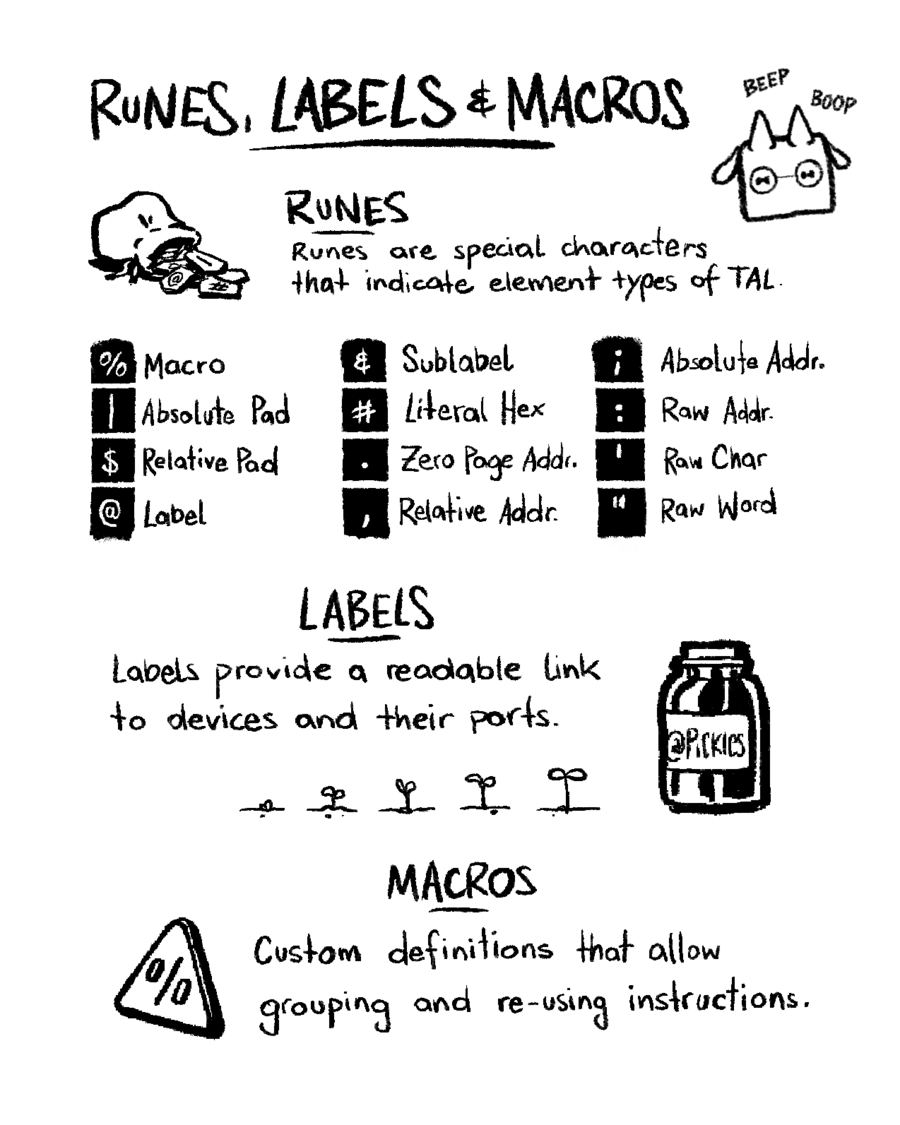 RUNES, LABELS & MACROS
BEEP
BOOP
RUNES
Runes are special characters
that indicate element types of TAL.
@ #
% Macro
| Absolute Pad
$ Relative Pad
@ Label
& Sublabel
# Literal Hex
. Zero Page Addr.
, Relative Addr.
; Absolute Addr.
: Raw Addr.
' Raw Char
" Raw Word
LABELS
Labels provide a readable link
to devices and their ports.
@PiCKlES
MACROS
%
Custom definitions that allow
grouping and re-using instructions.